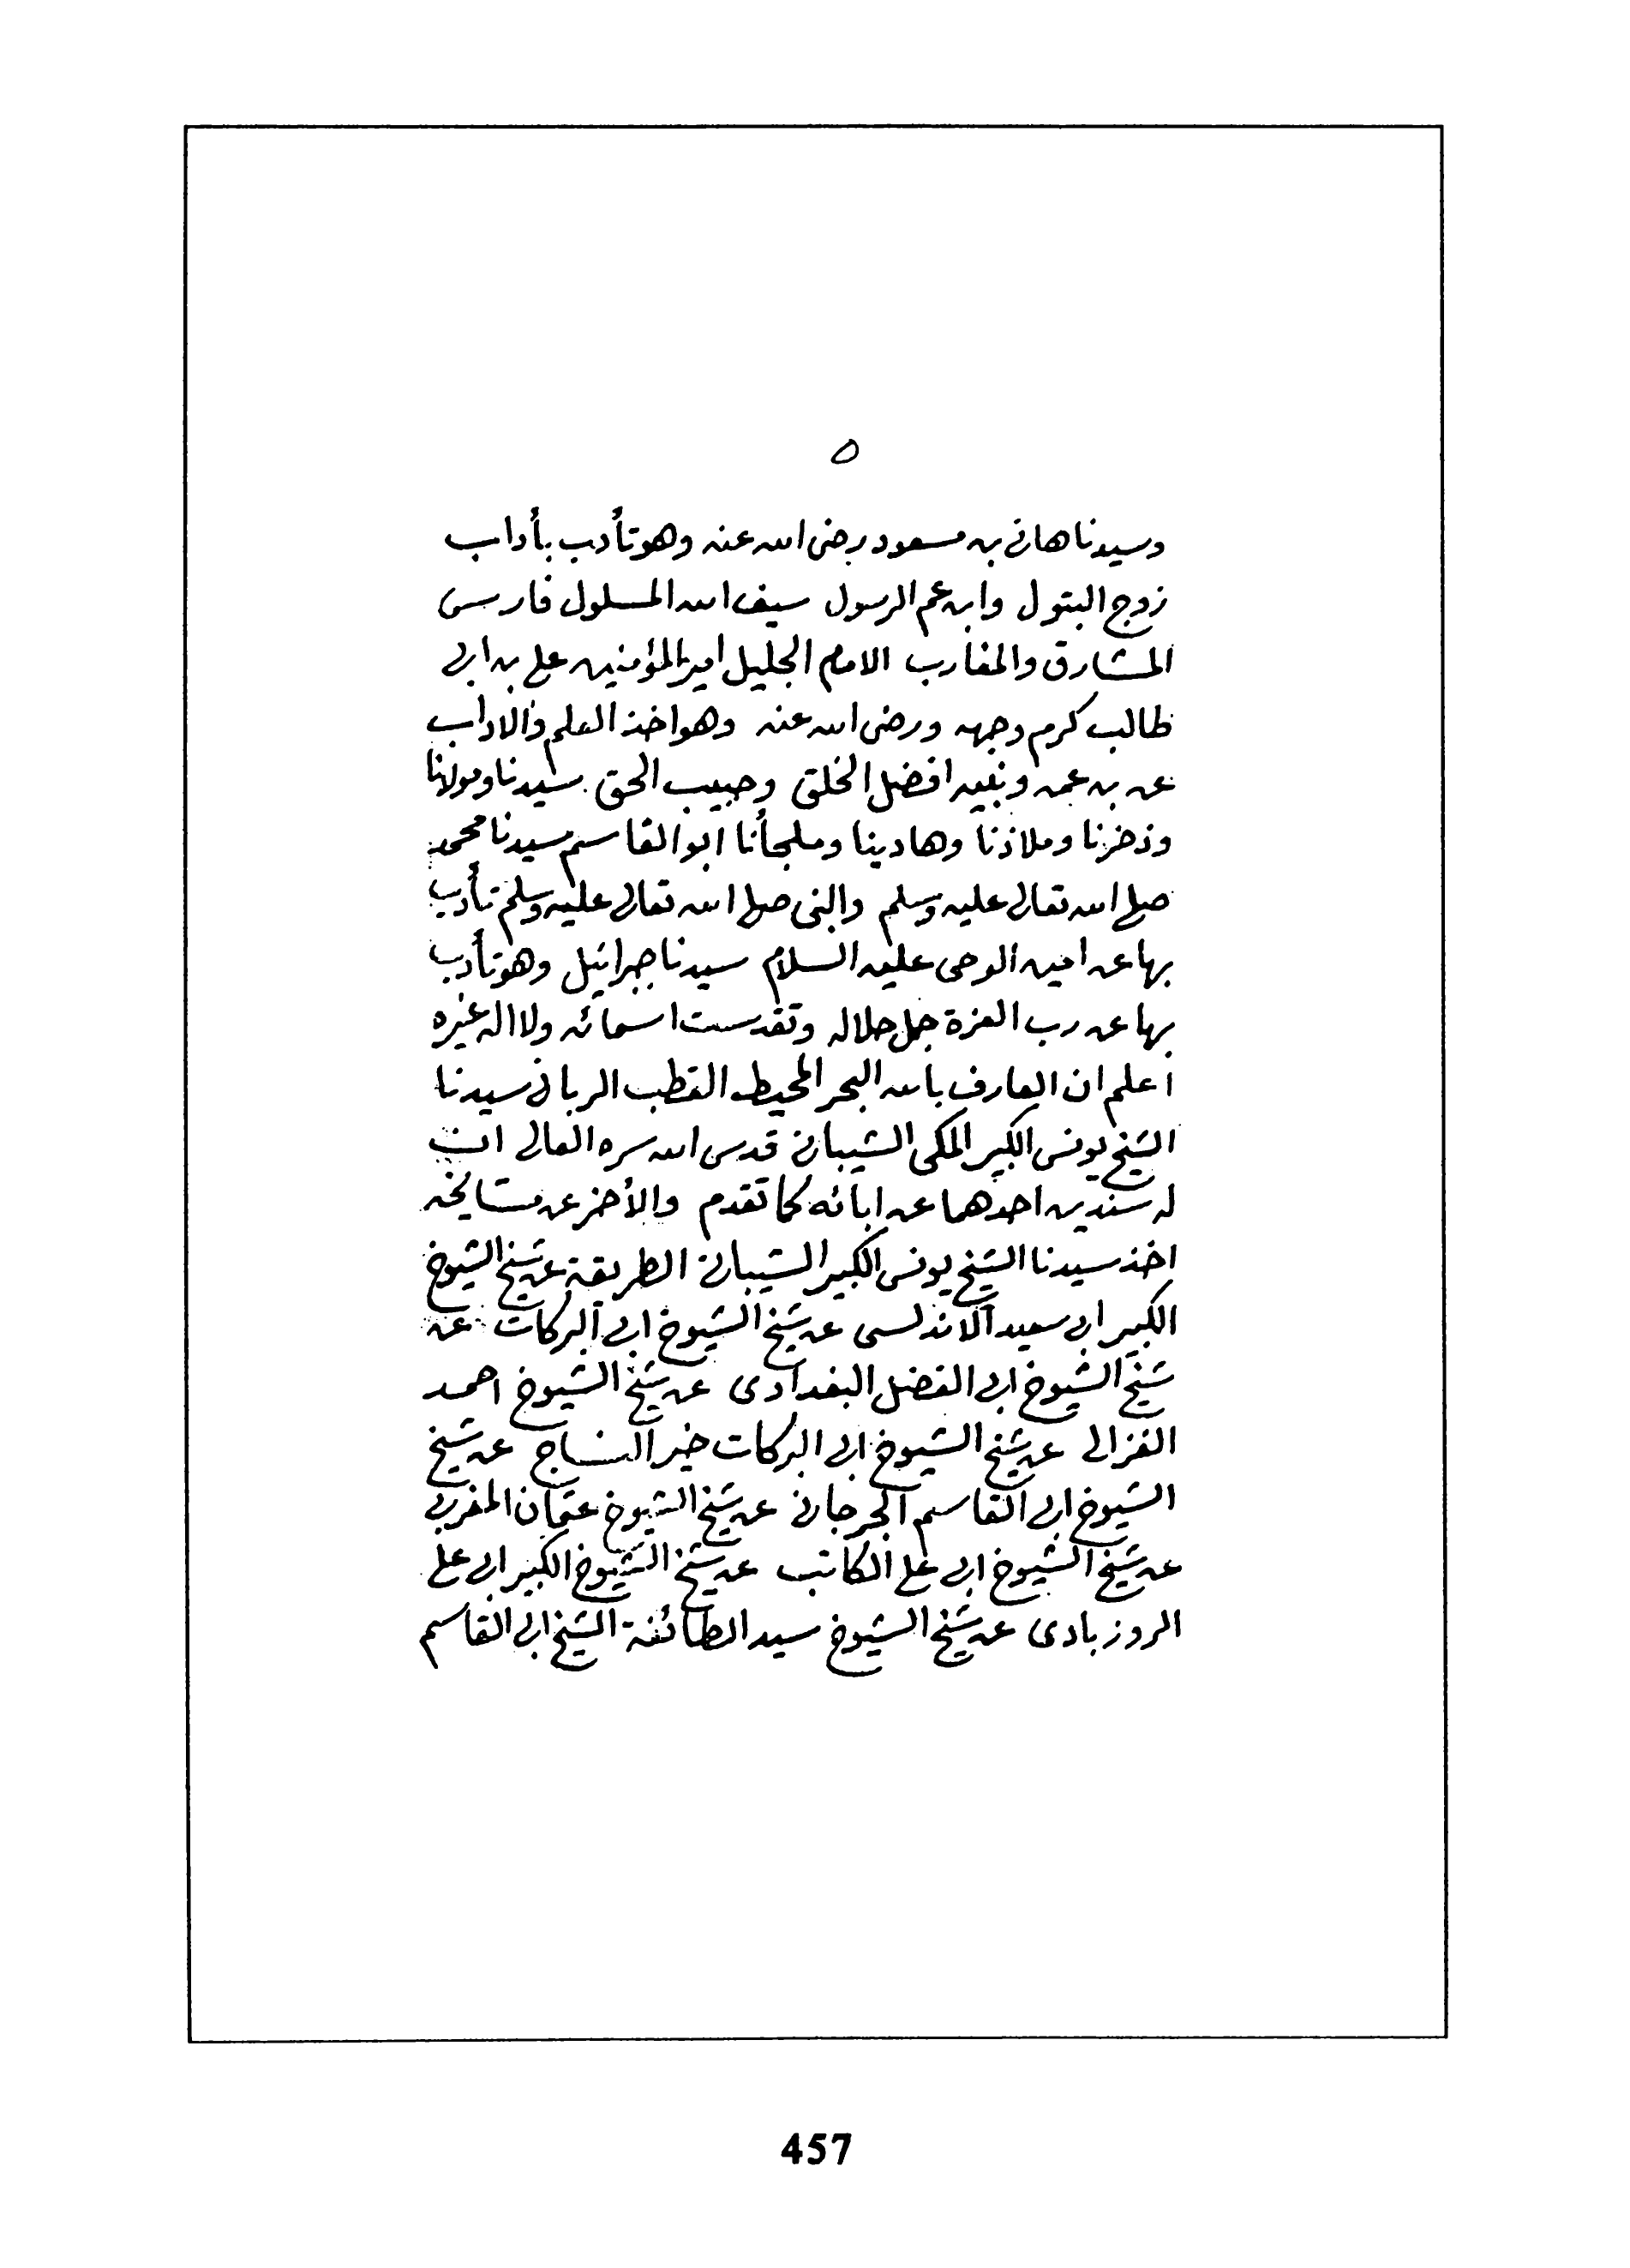 ٥
وسيدنا هاني بن مسعود رضى الله عنه وهو تأدب بأداب
زوج البتول وابن عم الرسول سيف الله المسلول فارس
المشارق والمغارب الامام الجليل امير المؤمنين علي بن ابي
طالب كرم وجهه ورضى الله عنه وهو اخذ العلم والاداب
عن بن عمه ونبيه افضل الخلق وحبيب الحق سيدنا ومولانا
وذخرنا وملاذنا وهادينا وملجأنا ابو القاسم سيدنا محمد
صلى الله تعالى عليه وسلم والنبى صلى الله تعالى عليه وسلم تأدب
بها عن امين الوحى عليه السلام سيدنا جبرائيل وهو تأدب
بها عن رب العزة جل جلاله وتقدست اسمائه ولا اله غيره
اعلم ان العارف بالله البحر المحيط القطب الرباني سيدنا
الشيخ يونس الكبير المكى الشيباني قدس الله سره العالي ان
له سندين احدهما عن ابائه كما تقدم والأخر عن مشايخه
اخذ سيدنا الشيخ يونس الكبير الشيباني الطريقة عن شيخ الشيوخ
الكبير ابي سعيد الاندلسى عن شيخ الشيوخ ابي البركات عن
شيخ الشيوخ ابي الفضل البغدادى عن شيخ الشيوخ احمد
الغزالى عن شيخ الشيوخ ابي البركات خير النساج عن شيخ
الشيوخ ابي القاسم الجرجاني عن شيخ الشيوخ عثمان المغربي
عن شيخ الشيوخ ابي علي الكاتب عن شيخ الشيوخ الكبير ابي علي
الروزبادى عن شيخ الشيوخ سيد الطائفة الشيخ ابي القاسم
457